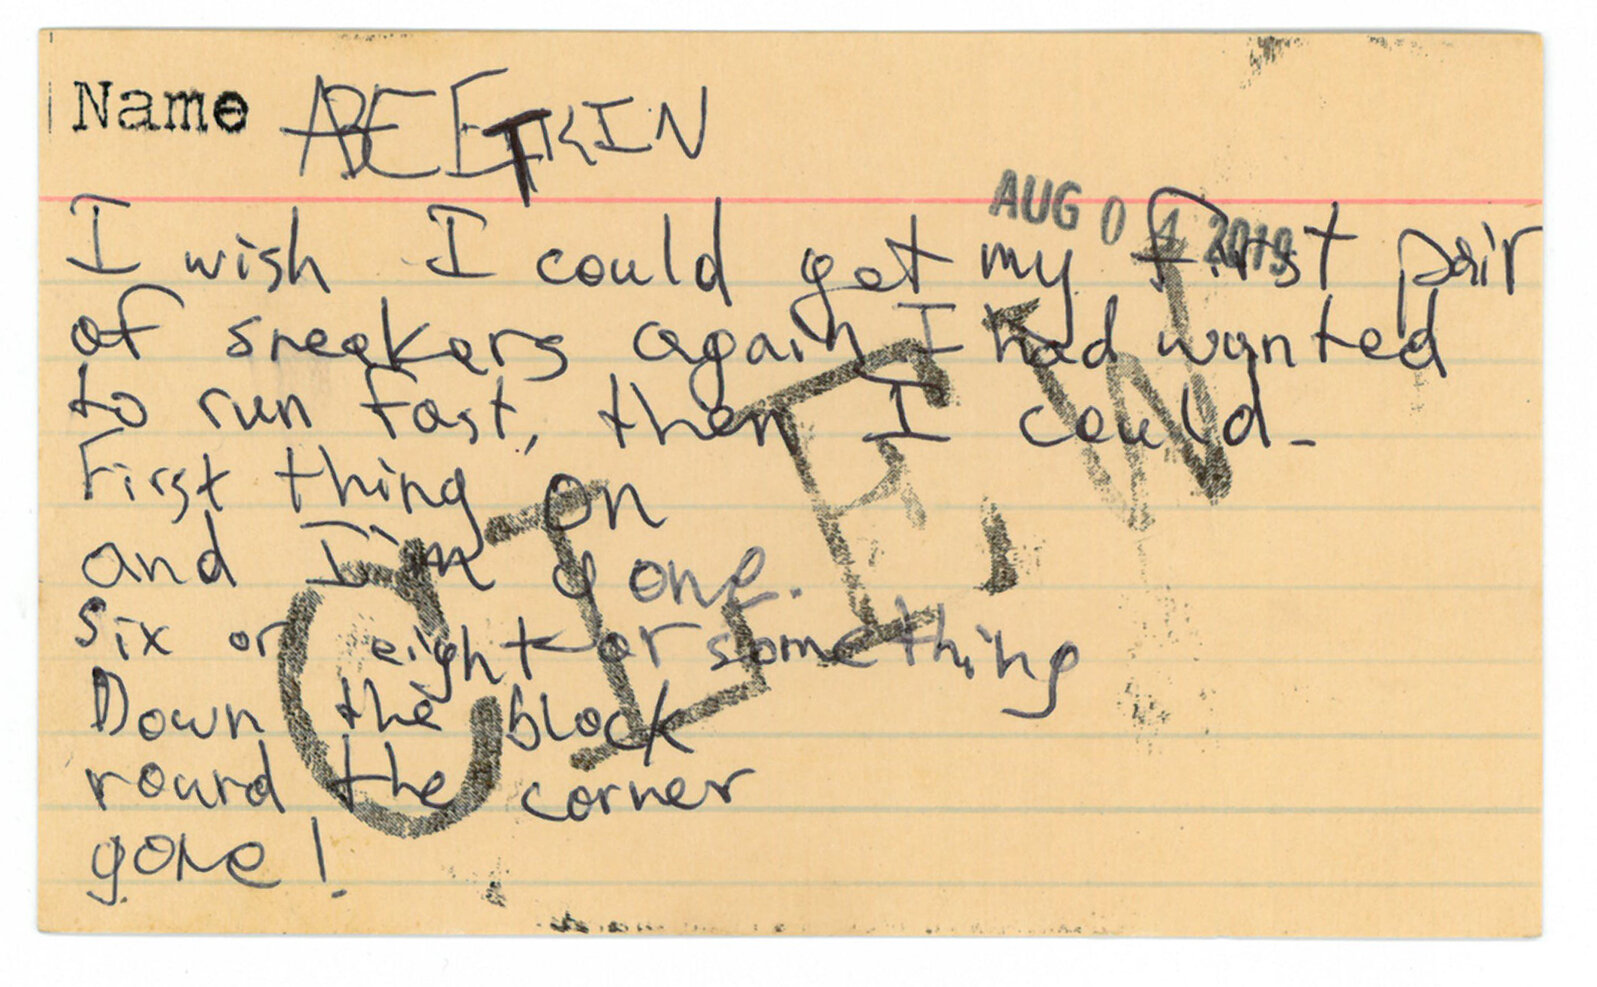 Name ABE ETKIN
AUG 04 2019
I wish I could get my first pair
of sneakers again I had wanted
to run fast, then I could.
First thing on
and I'm gone.
Six or eight or something
Down the block
round the corner
gone!